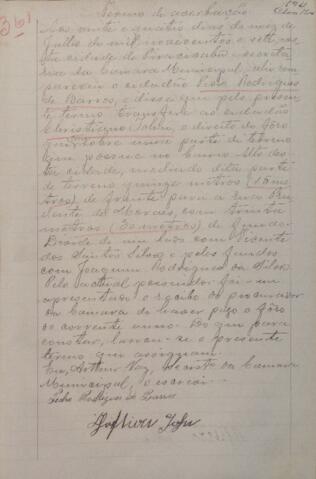 361
Termo de
Aos vinte e quatro dias do mez de
Julho de mil novecentos e sete, nes
ta cidade de Piracicaba e secreta
ria da Camara Municipal, ahi com
pareceu o cidadão Pedro Rodrigues
de Barros, e disse que pelo presen
te termo transfere ao cidadão
o direito de fôro
que sobre uma parte de terreno
que possue no Bairro Alto des
ta cidade, medindo dita parte
de terreno quinze metros (15 me
tros) de frente para a rua Pru
dente de Moraes, com trinta
metros (30 metros) de fundo.
Divide de um lado com Vicente
dos Santos Silva e pelos fundos
com Joaquim Rodrigues da Silva.
Pelo actual possuidor foi-me
apresentado o recibo do procurador
da Camara de haver pago o fôro
do corrente anno. Do que para
constar, lavrou-se o presente
termo que assignam.
Eu, Arthur Vaz, secretº da Camara
Municipal, o escrevi.
Pedro Rodrigues de Barros
John